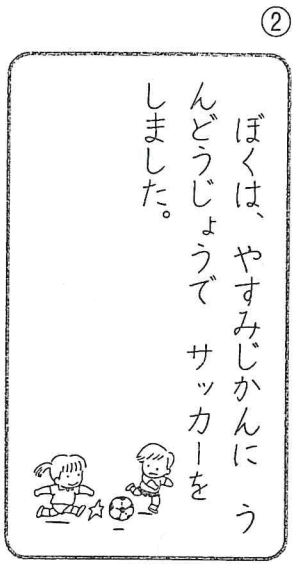 ②
ぼくは、やすみじかんに　う
んどうじょうで　サッカーを
しました。